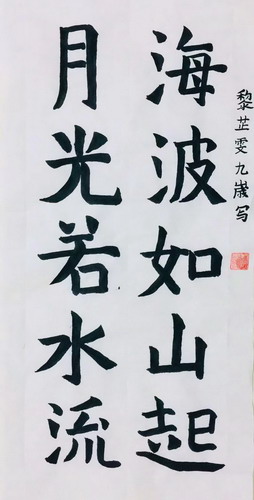 海波如山起
月光若水流
黎芷雯九歲写